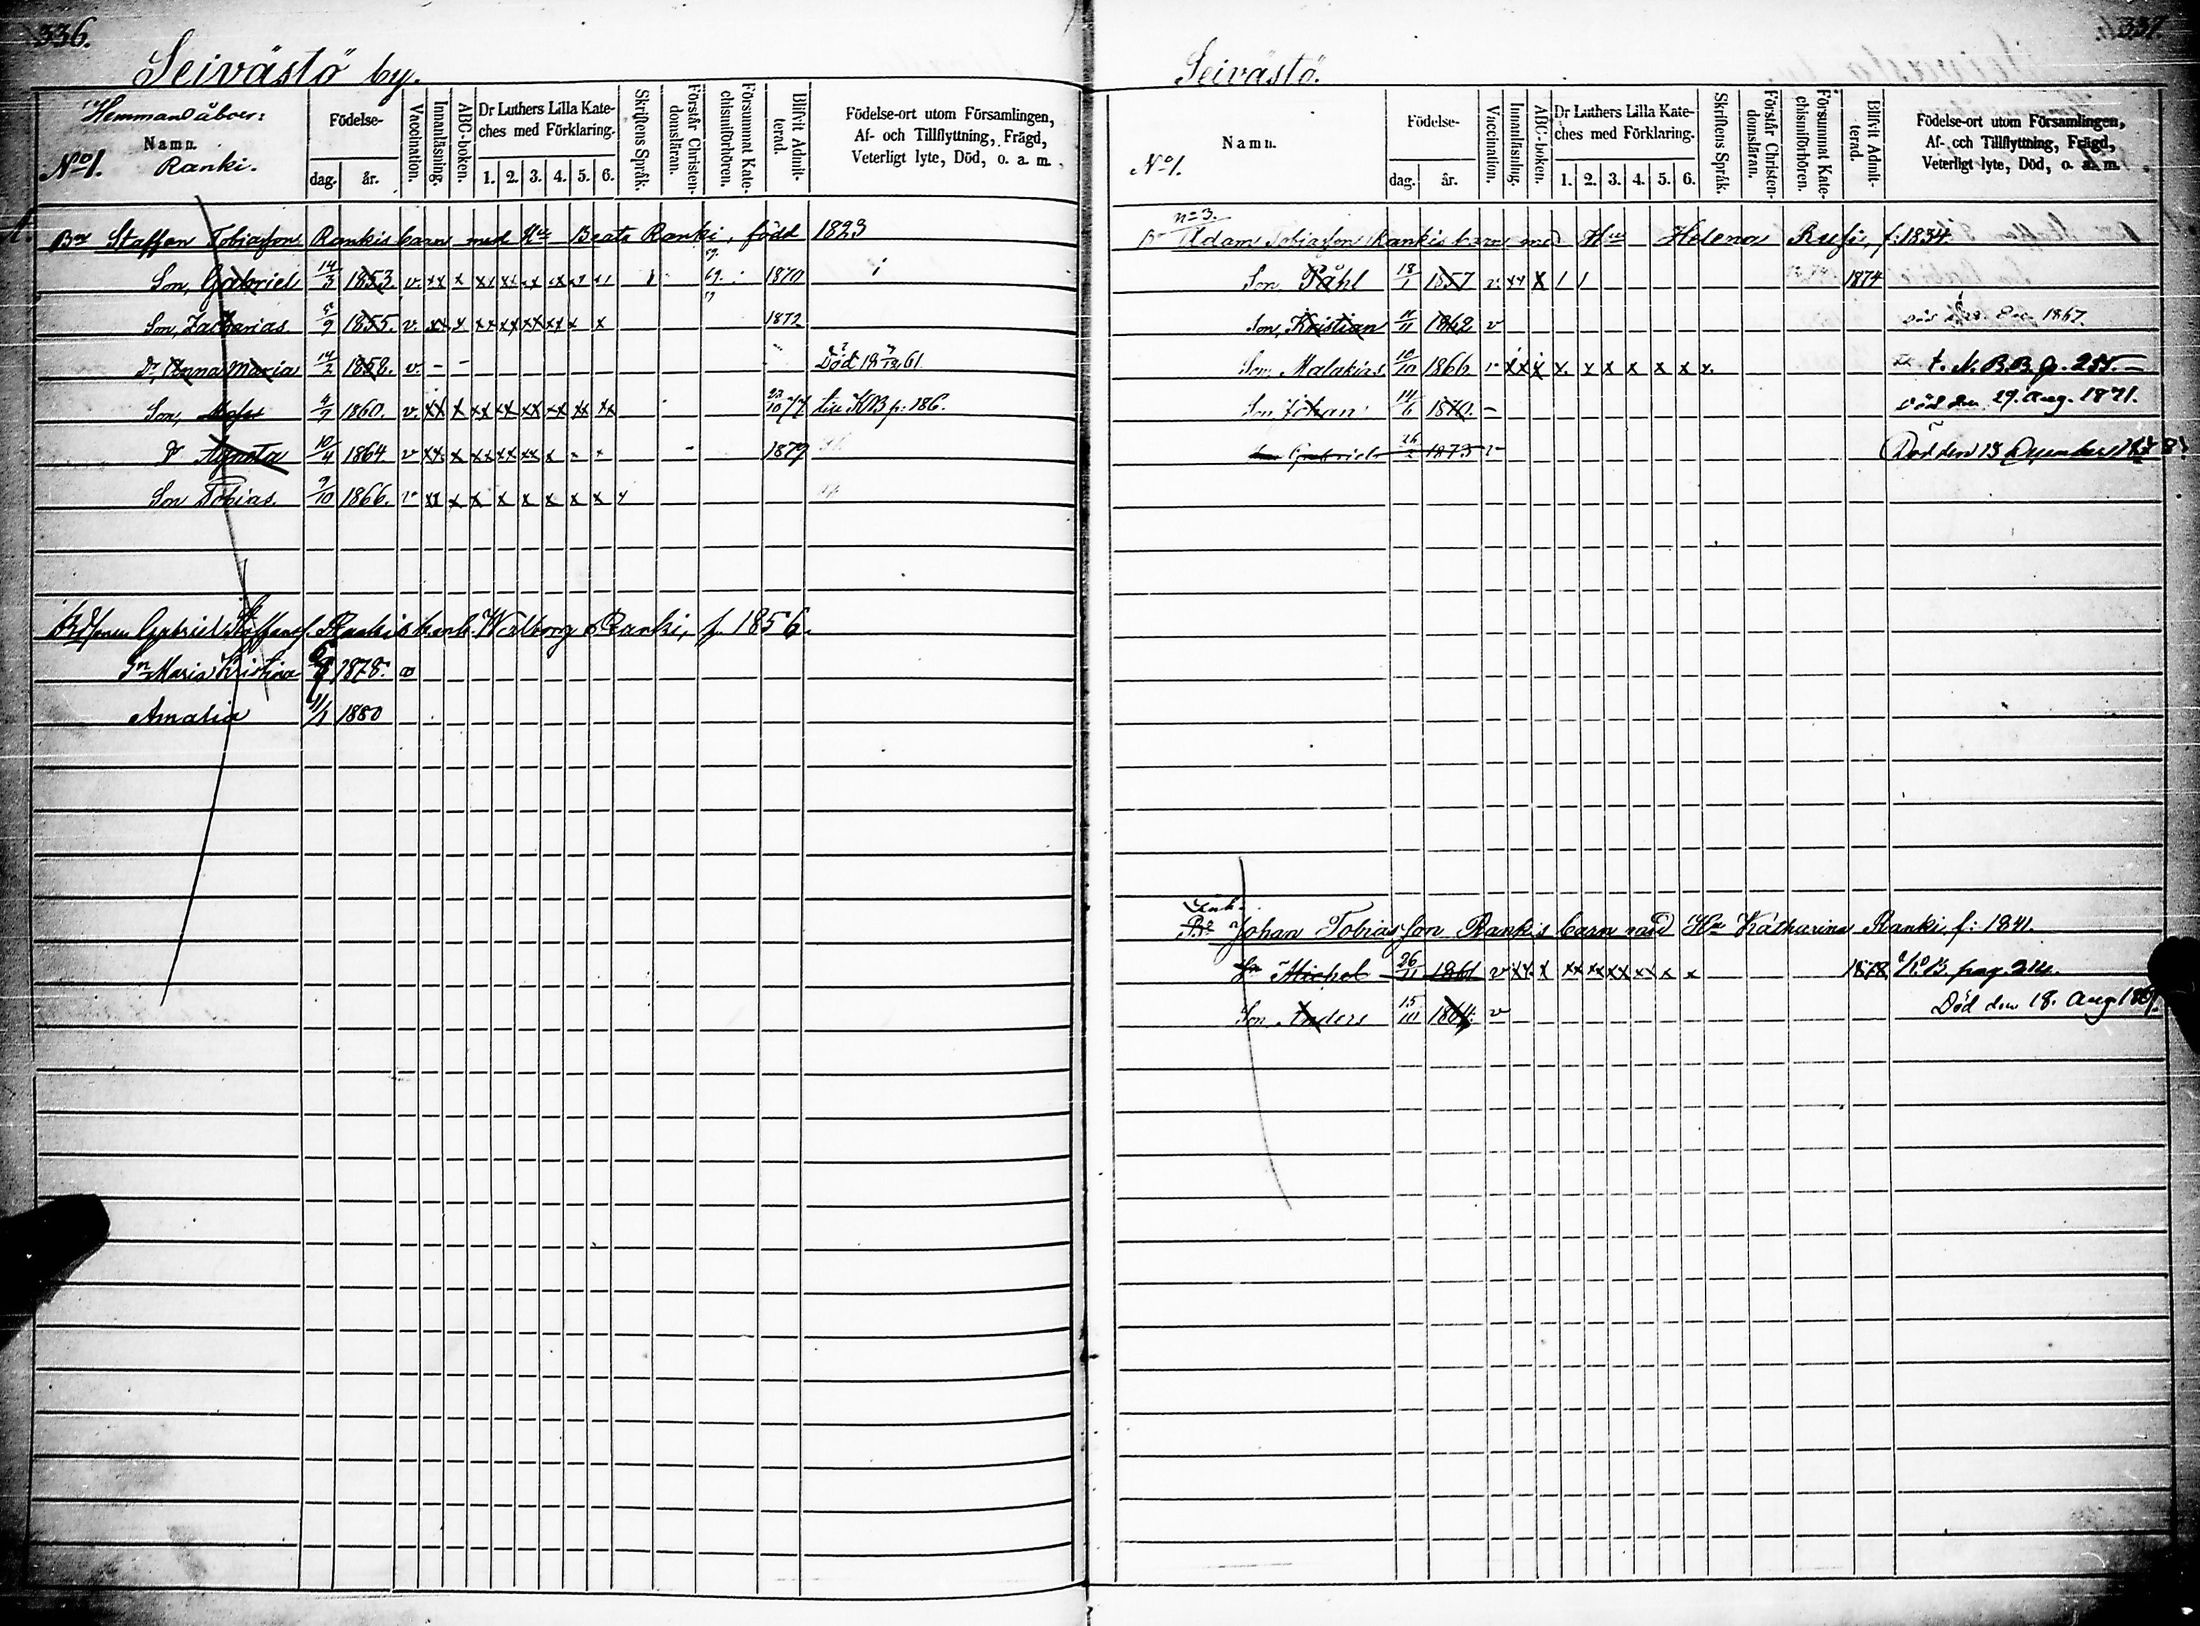 336.
Seivästö by.
Hemmansåboer:
Namn.
No 1. Ranki.
Födelse-
dag. år.
Vaccination.
Innanläsning.
ABC-boken.
Dr Luthers Lilla Kate-
ches med Förklaring.
1. 2. 3. 4. 5. 6.
Skriftens Språk.
Förstår Christen-
domsläran.
Försummat Kate-
chismiförhören.
Blifvit Admit-
terad.
Födelse-ort utom Församlingen,
Af- och Tillflyttning, Frägd,
Veterligt lyte, Död, o. a. m.
Bn Staffan Tobiasson Rankis barn med Hu Beata Ranki, född 1823
Son, Gabriel 14/3 1853 v xx x 69. 1870
Son, Zacharias 5/9 1855 v xx x xx xx xx xx x x 1872
Dr, Anna Maria 14/2 1858. v - - Död 61
Son, 4/7 1860. v. xx x xx xx xx xx xx xx 22/10 77 till KB p: 186.
Dr Agneta 10/4 1864 v xx x xx xx xx x - 1879
Son Tobias. 9/10 1866. v xx x x x x x x x
Gabriel Staffans. Ranki Walborg Ranki, f. 1856.
Maria Kristina 1878. v
Amalia 11/1 1880
337.
Seivästö.
No 1.
Namn.
Födelse-
dag. år.
Vaccination.
Innanläsning.
ABC-boken.
Dr Luthers Lilla Kate-
ches med Förklaring.
1. 2. 3. 4. 5. 6.
Skriftens Språk.
Förstår Christen-
domsläran.
Försummat Kate-
chismiförhören.
Blifvit Admit-
terad.
Födelse-ort utom Församlingen,
Af- och Tillflyttning, Frägd,
Veterligt lyte, Död, o. a. m.
no 3.
Adam Tobiasson Rankis barn med Hu Helena Rusi, f: 1834.
Son, Påhl 18/1 1857 v xx x / / 1874
Son, Kristian 11/11 1862 v 1867.
Son, Malakias 10/10 1866 v xx x x x x x x x t. N. B.B. p. 255.
Son Johan 14/6 1870. - död den 29. Aug. 1871.
Gabriel 26/2 1873 v Död den 13 December
Johan Tobiasson Rankis barn med Hu Katharina Ranki, f: 1841.
Michel 26/11 1861 v xx x xx xx xx xx x x 1878 KB pag.
Son Anders 15/10 1864. v Död den 18. Aug